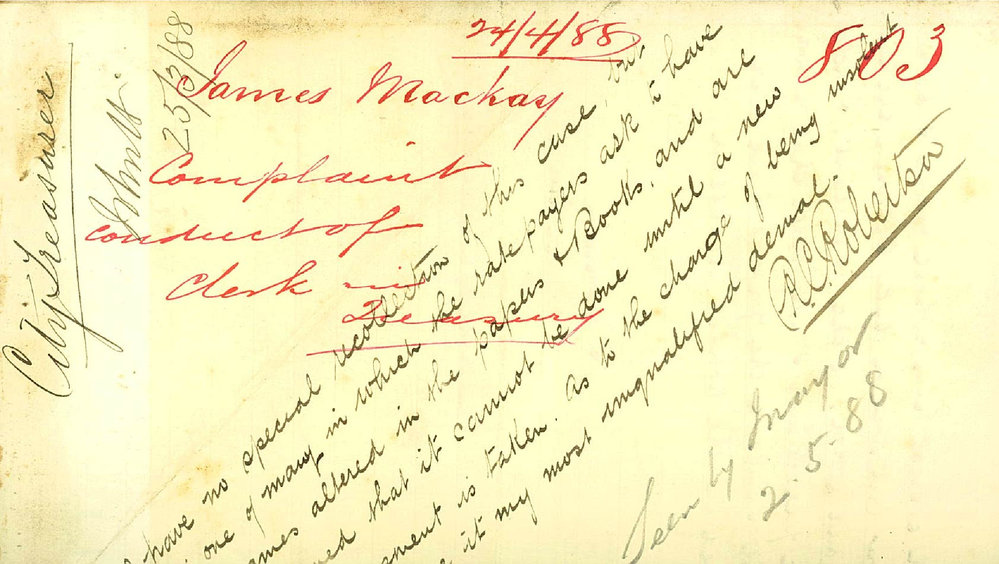 24/4/88
803
James Mackay
Complaint
conduct of
Clerk in
Treasury
City Treasurer
25/3/88
have no special recollection of this case, but
one of many in which the ratepayers ask to have
names altered in the papers & Books, and are
that it cannot be done until a new
is taken. As to the charge of being insolent
it my most unqualified denial.
R C Robertson
Seen by Mayor
2.5.88